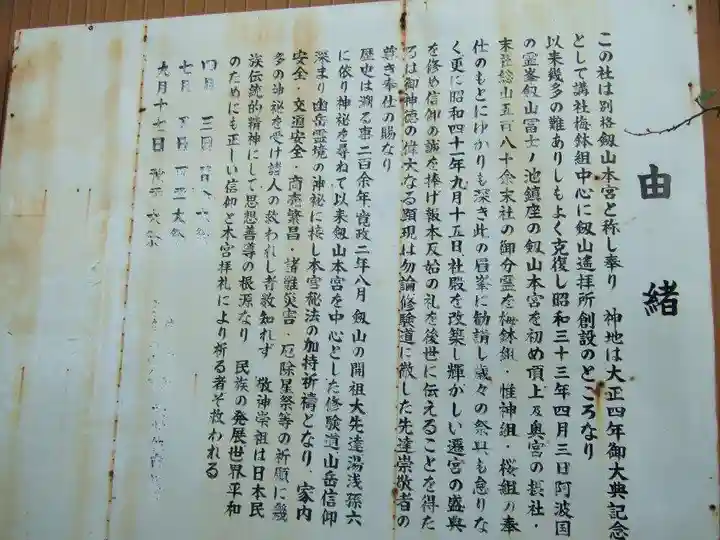 由緒
この社は別格劔山本宮と称し奉り 神地は大正四年御大典記念
として講社梅鉢組中心に劔山遙拝所創設のところなり
以来幾多の難ありしもよく克復し昭和三十三年四月三日阿波国
の霊峯劔山冨士ノ池鎮座の劔山本宮を初め頂上及奥宮の摂社・
末社総山五百八十余末社の御分霊を梅鉢組・惟神組・桜組の奉
仕のもとにゆかりも深き此の眉峯に勧請し歳々の祭典も怠りな
く更に昭和四十一年九月十五日社殿を改築し輝かしい遷宮の盛典
を修め信仰の誠を捧げ報本反始の礼を後世に伝えることを得た
るは御神徳の偉大なる顕現は勿論修験道に徹した先達崇敬者の
尊き奉仕の賜なり
歴史は溯る事二百余年寛政二年八月劔山の開祖大先達湯浅孫六
に依り神秘を尋ねて以来劔山本宮を中心とした修験道山岳信仰
深まり幽岳霊境の神秘に接し本宮秘法の加持祈禱となり、家内
安全・交通安全・商売繁昌・諸難災害・厄除星祭等の祈願に幾
多の神秘を受け諸人の救われし者数知れず 敬神崇祖は日本民
族伝統的精神にして思想善導の根源なり 民族の発展世界平和
のためにも正しい信仰と本宮拝礼により祈る者ぞ救われる
四月 三日 大祭
七月 日 大祭
九月十七日 大祭